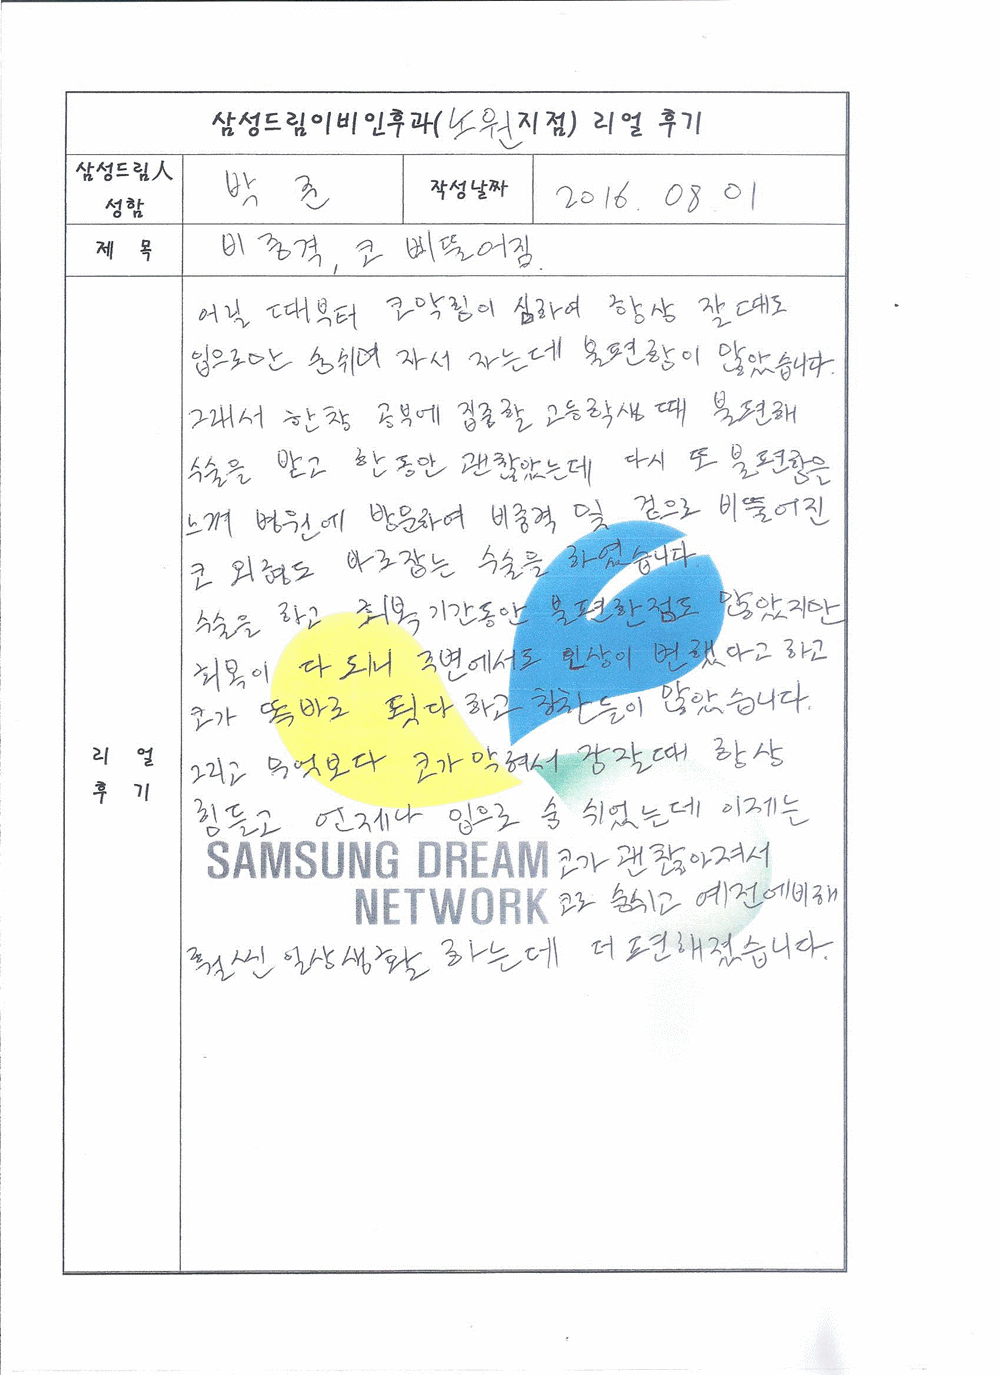 삼성드림이비인후과(노원지점) 리얼 후기
삼성드림人 성함
박 준
작성날짜
2016. 08. 01
제 목
비중격, 코 삐뚤어짐.
리 얼 후 기
어릴 때부터 코막힘이 심하여 항상 잘때도
입으로만 숨쉬며 자서 자는데 불편함이 많았습니다.
그래서 한창 공부에 집중할 고등학생 때 불편해
수술을 받고 한동안 괜찮았는데 다시 또 불편함을
느껴 병원에 방문하여 비중격 및 겉으로 비뚤어진
코 외형도 바로잡는 수술을 하였습니다.
수술을 하고 회복기간동안 불편한점도 많았지만
회복이 다 되니 주변에서도 인상이 변했다고 하고
코가 똑바로 됬다 하고 칭찬들이 많았습니다.
그리고 무엇보다 코가 막혀서 잠잘때 항상
힘들고 언제나 입으로 숨 쉬었는데 이제는
SAMSUNG DREAM 코가 괜찮아져서
NETWORK 코로 숨쉬고 예전에비해
훨씬 일상생활 하는데 더 편해졌습니다.